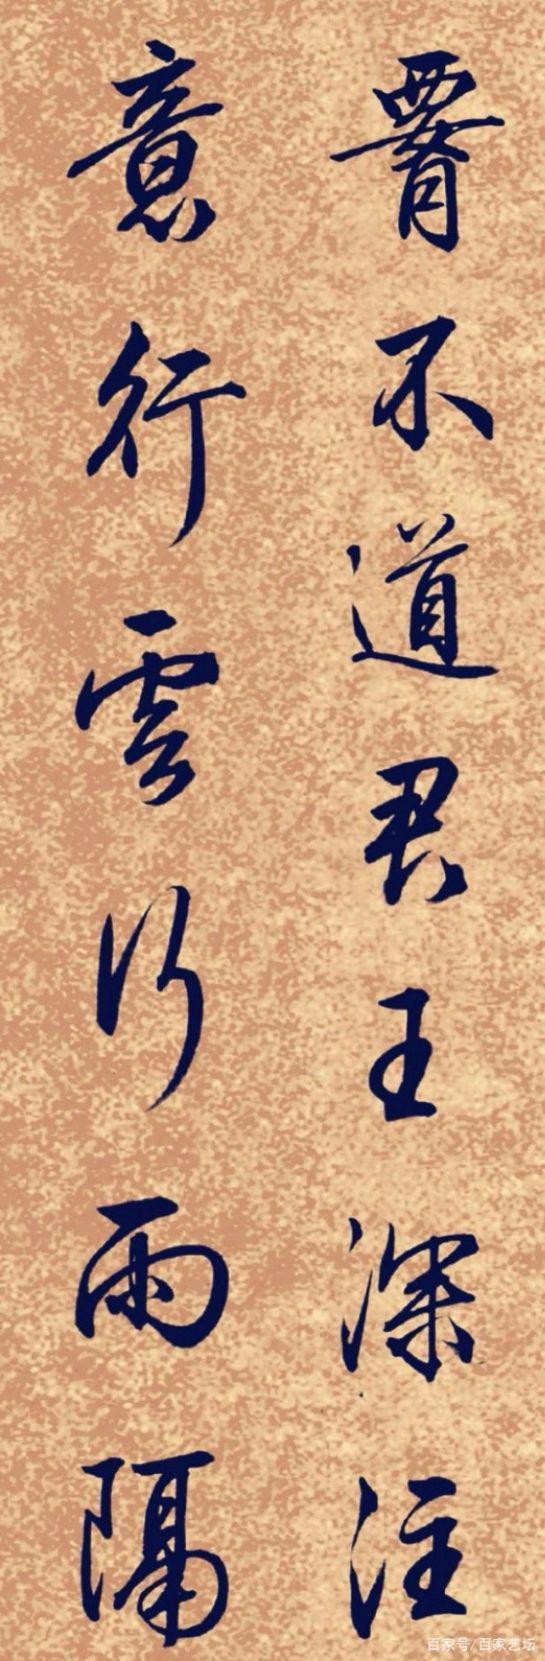 不道君王深注
意行雲行雨隔
百家号/百家艺坛